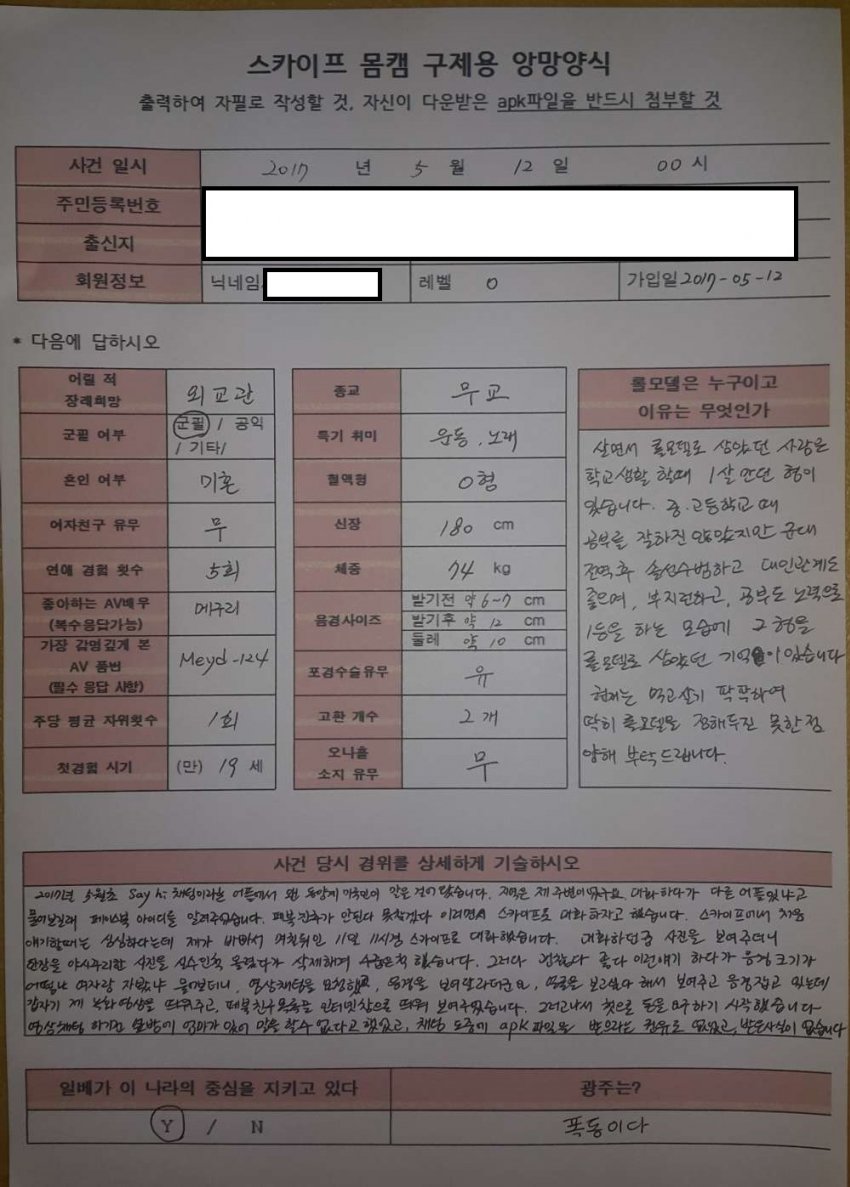 스카이프 몸캠 구제용 앙망양식
출력하여 자필로 작성할 것, 자신이 다운받은 apk파일을 반드시 첨부할 것
사건 일시 2017 년 5 월 12 일 00 시
주민등록번호
출신지
회원정보 닉네임: 레벨 0 가입일 2017-05-12
* 다음에 답하시오
어릴 적
장래희망 외교관
군필 여부 군필 / 공익
/ 기타/
혼인 여부 미혼
여자친구 유무 무
연애 경험 횟수 5회
좋아하는 AV배우
(복수응답가능) 메구리
가장 감명깊게 본
AV 품번
(필수 응답 사항) Meyd-124
주당 평균 자위횟수 1회
첫경험 시기 (만) 19 세
종교 무교
특기 취미 운동, 노래
혈액형 O형
신장 180 cm
체중 74 kg
음경사이즈
발기전 약 6-7 cm
발기후 약 12 cm
둘레 약 10 cm
포경수술유무 유
고환 개수 2개
오나홀
소지 유무 무
롤모델은 누구이고
이유는 무엇인가
살면서 롤모델로 삼았던 사람은
학교생활 할때 1살 많던 형이
있습니다. 중·고등학교 때
공부를 잘하진 않았지만 군대
전역후 솔선수범하고 대인관계도
좋으며, 부지런하고, 공부도 노력으로
1등을 하는 모습에 그 형을
롤모델로 삼았던 기억이 있습니다
현재는 먹고살기 팍팍하여
딱히 롤모델을 정해두진 못한점
양해 부탁드립니다.
사건 당시 경위를 상세하게 기술하시오
2017년 5월초 Say hi 채팅이라는 어플에서 왠 동양계 미국인이 말을 걸어 왔습니다. 지역은 제 주변이었구요. 대화하다가 다른 어플있냐고
물어보길래 페이스북 아이디를 알려주었습니다. 페북친추가 안된다 못찾겠다 이러면서 스카이프로 대화하자고 했습니다. 스카이프에서 처음
얘기할때는 심심하다는데 제가 바빠서 며칠뒤인 11일 11시경 스카이프로 대화했습니다. 대화하던중 사진을 보여주더니
한장을 야시꾸리한 사진을 실수인척 올렸다가 삭제하며 수습은척 했습니다. 그러다 괜찮다 좋다 이런얘기 하다가 음경 크기가
어떻냐 여자랑 자봤냐 물어보더니, 영상채팅을 요청했고, 음경을 보여달라더군요, 얼굴을 보고싶다 해서 보여주고 음경잡고 있는데
갑자기 제 녹화영상을 띄워주고, 페북친구목록을 인터넷창으로 띄워 보여주었습니다. 그러고나서 컷으로 돈을 요구하기 시작했습니다
영상채팅 하기전 옆방에 엄마가 있어 말을 할수 없다고 했었고, 채팅 도중에 apk파일을 받으라는 권유도 없었고, 받은사실이 없습니다
일베가 이 나라의 중심을 지키고 있다 광주는?
Y / N 폭동이다